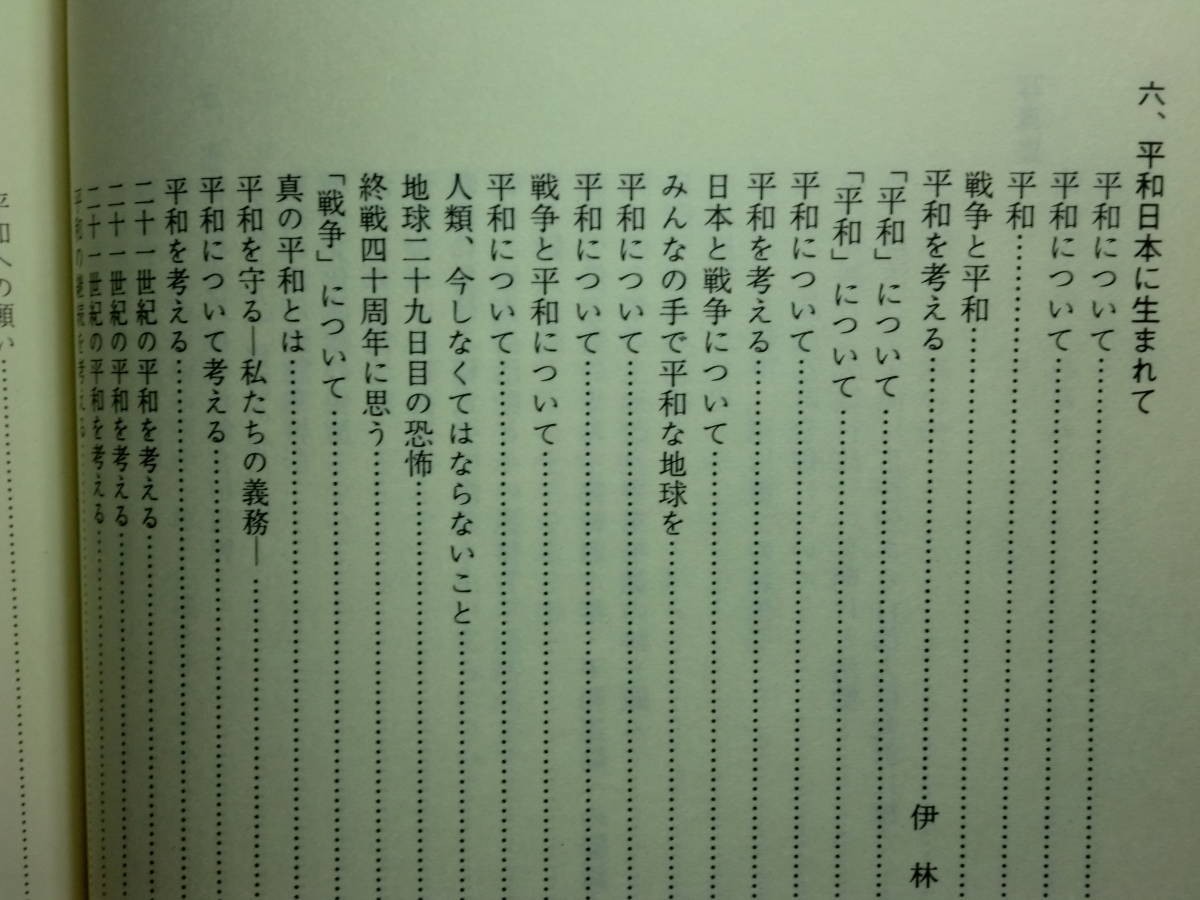 六、平和日本に生まれて
平和について……………………………
平和について……………………………
平和……………………………
戦争と平和……………………………
平和を考える……………………………伊林
「平和」について……………………………
「平和」について……………………………
平和について……………………………
平和を考える……………………………
日本と戦争について……………………………
みんなの手で平和な地球を……………………………
平和について……………………………
平和について……………………………
戦争と平和について……………………………
平和について……………………………
人類、今しなくてはならないこと……………………………
地球二十九日目の恐怖……………………………
終戦四十周年に思う……………………………
「戦争」について……………………………
真の平和とは……………………………
平和を守る―私たちの義務―……………………………
平和について考える……………………………
平和を考える……………………………
二十一世紀の平和を考える……………………………
二十一世紀の平和を考える……………………………
二十一世紀の平和を考える……………………………
平和への願い……………………………